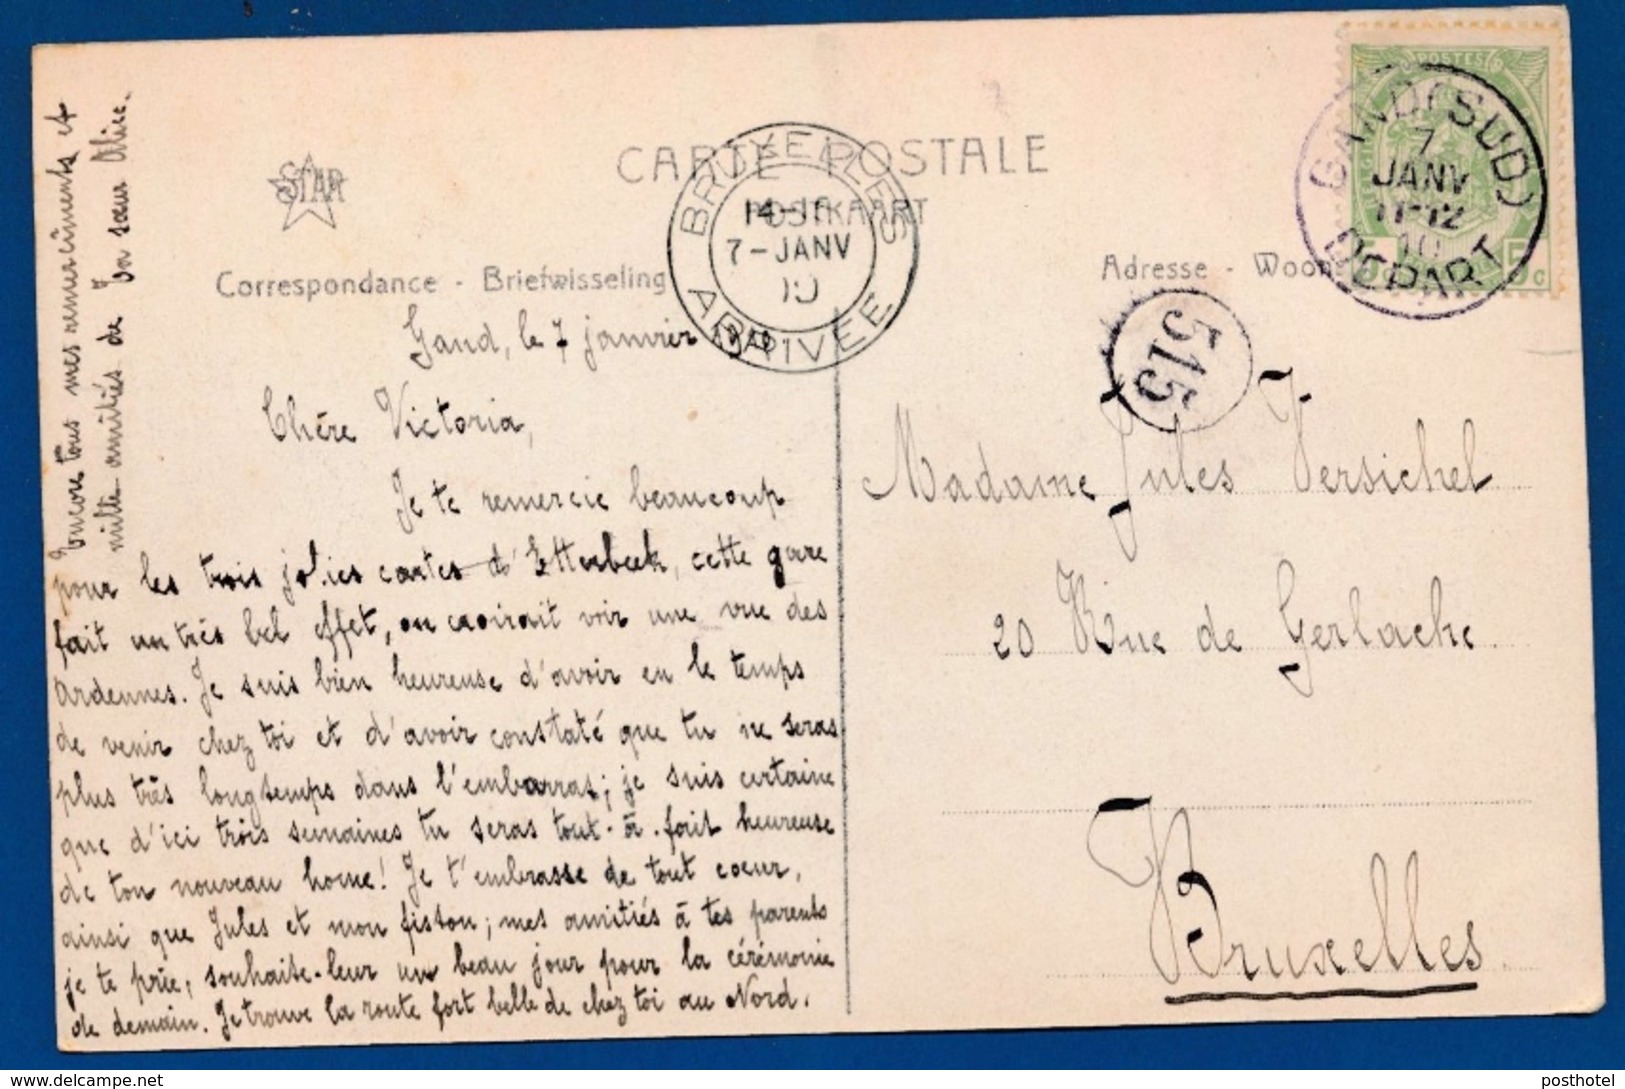 STAR
CARTE POSTALE
POSTKAART
Correspondance - Briefwisseling
Adresse - Woon
BRUXELLES
7-JANV
10
ARRIVEE
GAND (SUD)
7
JANV
11-12
10
DEPART
POSTES
5c
515
Gand, le 7 janvier 1910
Chère Victoria,
Je te remercie beaucoup
pour les trois jolies cartes d'Etterbeek, cette gare
fait un très bel effet, on croirait voir une vue des
Ardennes. Je suis bien heureuse d'avoir eu le temps
de venir chez toi et d'avoir constaté que tu ne seras
plus très longtemps dans l'embarras; je suis certaine
que d'ici trois semaines tu seras tout-à-fait heureuse
de ton nouveau home! Je t'embrasse de tout coeur,
ainsi que Jules et mon fiston; mes amitiés à tes parents
je te prie, souhaite-leur un beau jour pour la cérémonie
de demain. Je trouve la route fort belle de chez toi au Nord.
Encore tous mes remercîments et
mille amitiés de Ta sœur Alice.
Madame Jules Versichel
20 Rue de Gerlache.
Bruxelles.
https://www.delcampe.net
posthotel